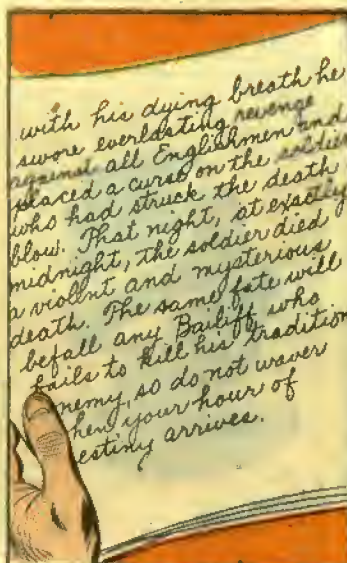 with his dying breath he
swore everlasting revenge
against all Englishmen and
placed a curse on the soldier
who had struck the death
blow. That night, at exactly
midnight, the soldier died
a violent and mysterious
death. The same fate will
befall any Bailiff who
fails to kill his tradition
enemy, so do not waver
hen your hour of
estiny arrives.